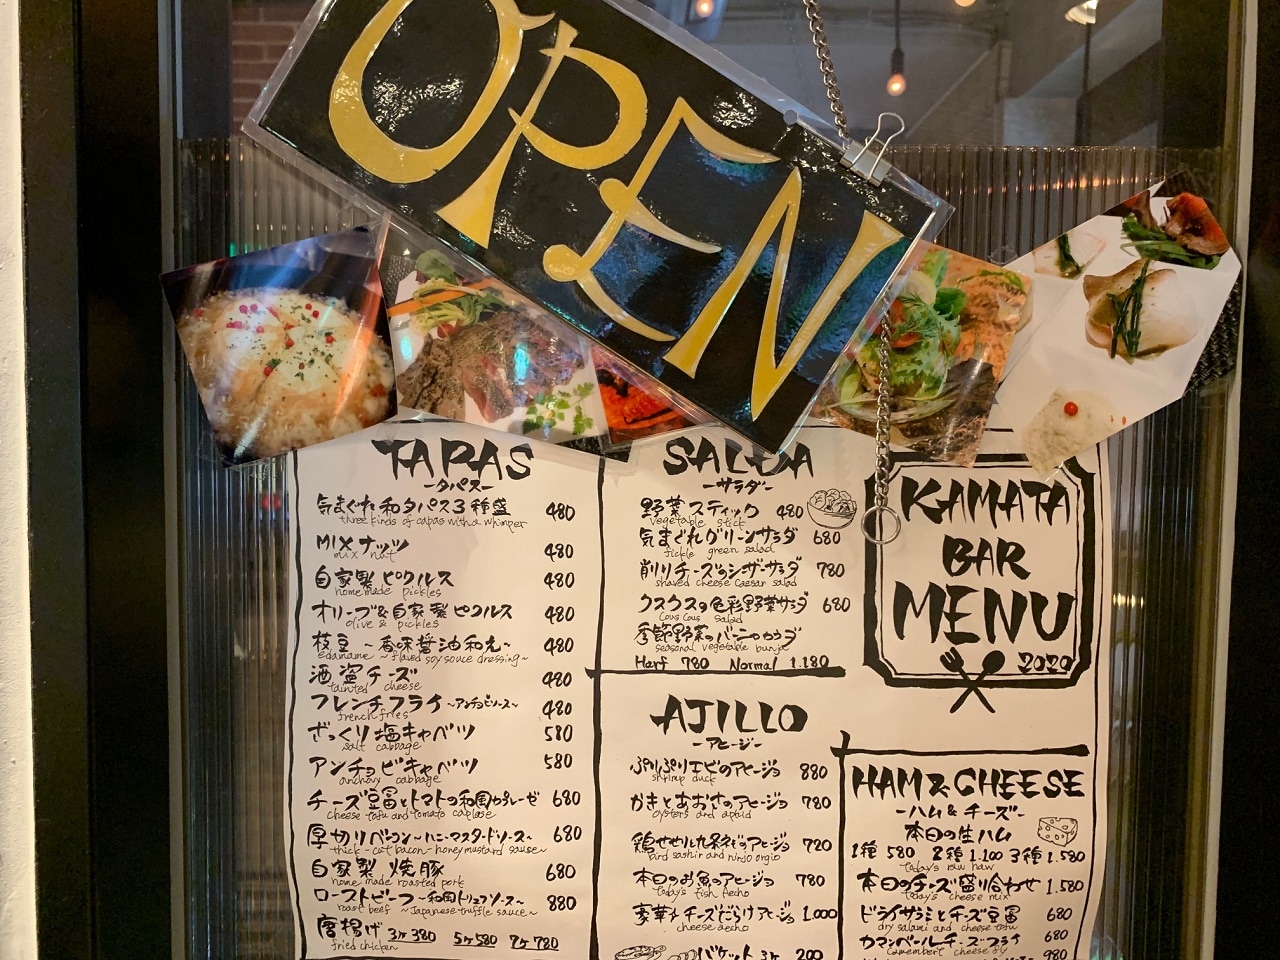 OPEN
TAPAS
-タパス-
気まぐれ和タパス3種盛 480
three kinds of capas with a whimper
MIXナッツ 480
mix nut
自家製ピクルス 480
home made pickles
オリーブ&自家製ピクルス 480
olive & pickles
枝豆 ~香味醤油和え~ 480
edamame ~flaved soy sauce dressing~
酒盗チーズ 480
tainted cheese
フレンチフライ ~アンチョビソース~ 480
french fries
ざっくり塩キャベツ 580
salt cabbage
アンチョビキャベツ 580
anchovy cabbage
チーズ豆冨とトマトの和風カプレーゼ 680
cheese tofu and tomato caplese
厚切りベーコン ~ハニーマスタードソース~ 680
thick-cut bacon-honeymustard sause~
自家製 焼豚 680
home made roasted pork
ローストビーフ ~和風トリュフソース~ 880
roast beef ~Japanese truffle sauce~
唐揚げ 3ヶ380 5ヶ580 7ヶ780
fried chicken
SALDA
-サラダ-
野菜スティック 480
vegetable stick
気まぐれグリーンサラダ 680
fickle green salad
削りチーズのシーザーサラダ 780
shaved cheese caesar salad
クスクスの色彩野菜サラダ 680
cous cous salad
季節野菜のバーニャカウダ
seasonal vegetable bunja
Harf 780 Normal 1.180
AJILLO
-アヒージョ-
ぷりぷりエビのアヒージョ 880
shrimp duck
かきとあおさのアヒージョ 780
oysters and
鶏せせり九条ネギのアヒージョ 720
本日のお魚のアヒージョ 780
today's fish
豪華チーズだらけアヒージョ 1.000
cheese aecho
バケット 3ヶ 200
KAMATA
BAR
MENU
2020
HAM & CHEESE
-ハム&チーズ-
本日の生ハム
1種 580 2種 1.100 3種 1.580
today's raw haw
本日のチーズ盛り合わせ 1.580
today's cheese mix
ドライサラミとチーズ豆冨 680
dry salami and cheese tofu
カマンベールチーズフライ 680
camembert cheese fry
980